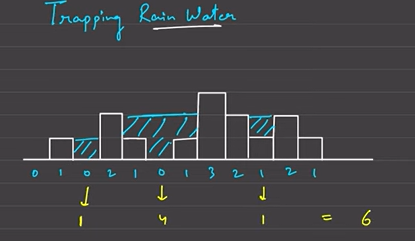 Trapping Rain Water
0 1 0 2 1 0 1 3 2 1 2 1
1 4 1 = 6